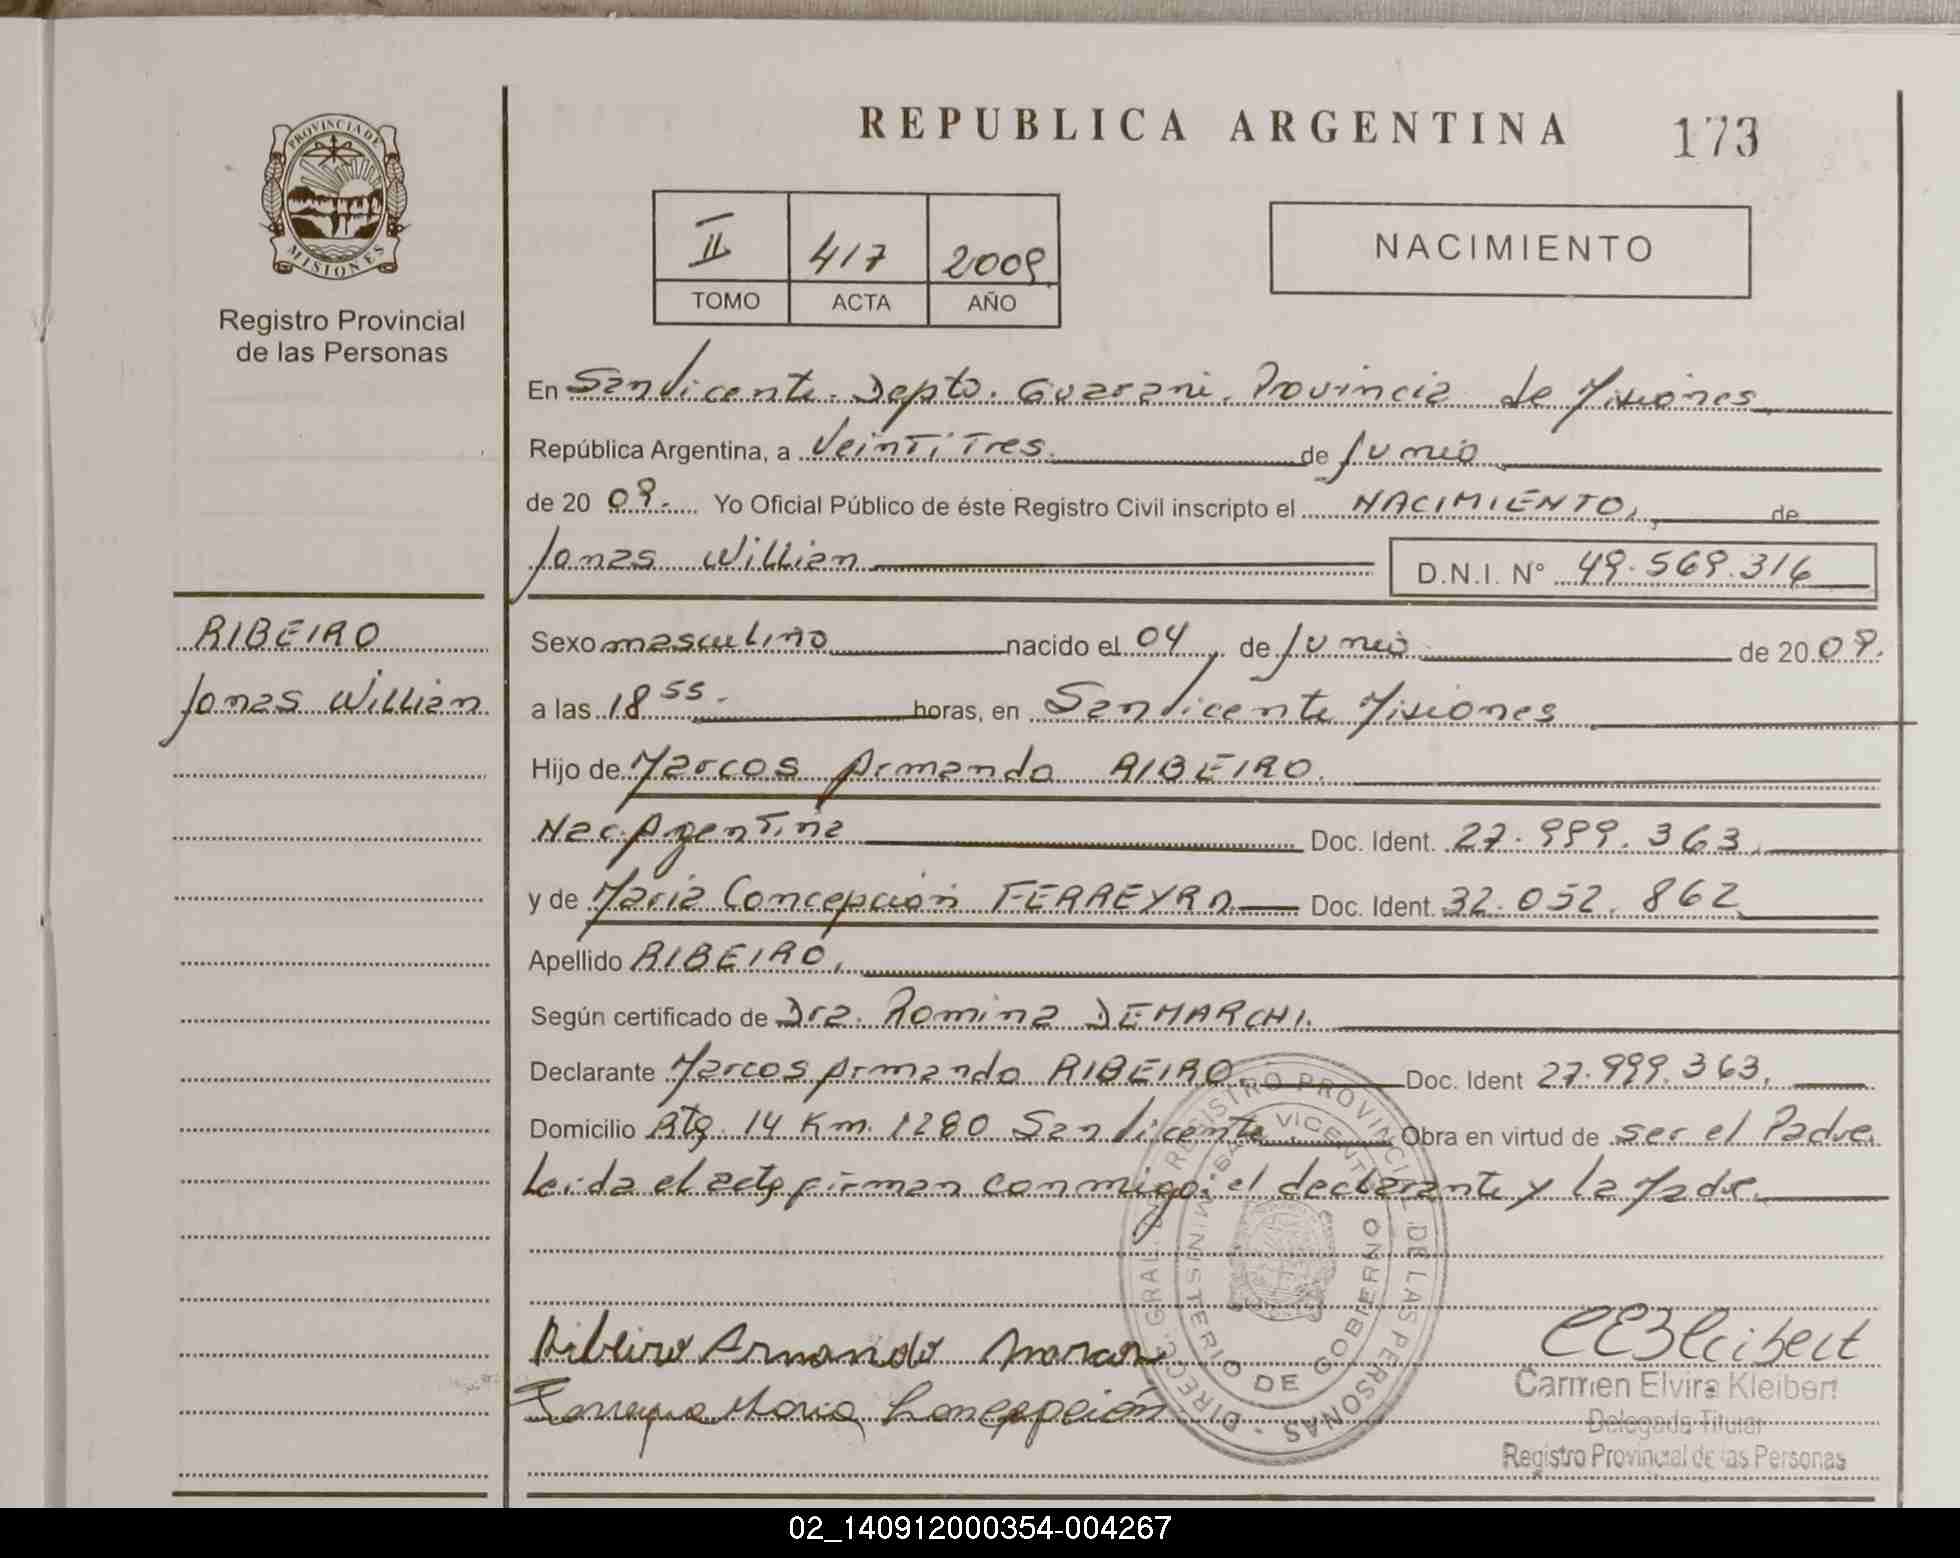 REPUBLICA ARGENTINA
173
PROVINCIA DE
MISIONES
Registro Provincial
de las Personas
II 417 2009
TOMO ACTA AÑO
NACIMIENTO
En San Vicente. Depto. Guarani. Provincia de Misiones
República Argentina, a Veintitres. de Junio
de 20 09. Yo Oficial Público de éste Registro Civil inscripto el NACIMIENTO, de
Jonas Willian D.N.I. N° 49.569.316
RIBEIRO
Jonas Willian
Sexo masculino nacido el 04 de Junio de 20 09.
a las 18 55. horas, en San Vicente Misiones
Hijo de Marcos Armando RIBEIRO.
Nac. Argentina Doc. Ident. 27.999.363
y de Maria Concepción FERREYRA Doc. Ident. 32.052.862
Apellido RIBEIRO,
Según certificado de Dra. Romina DEMARCHI.
Declarante Marcos Armando RIBEIRO. Doc. Ident 27.999.363.
Domicilio Rta. 14 Km. 1280 San Vicente. Obra en virtud de ser el Padre.
Leida el acta firman conmigo: el declarante y la Madre.
DIREC. GRAL. REGISTRO PROVINCIAL DE LAS PERSONAS
VICENTE
MINISTERIO DE GOBIERNO
Ribeiro Armando Marcos
Ferreyra Maria Concepción
CEKleibert
Carmen Elvira Kleibert
Delegada Titular
Registro Provincial de las Personas
02_140912000354-004267